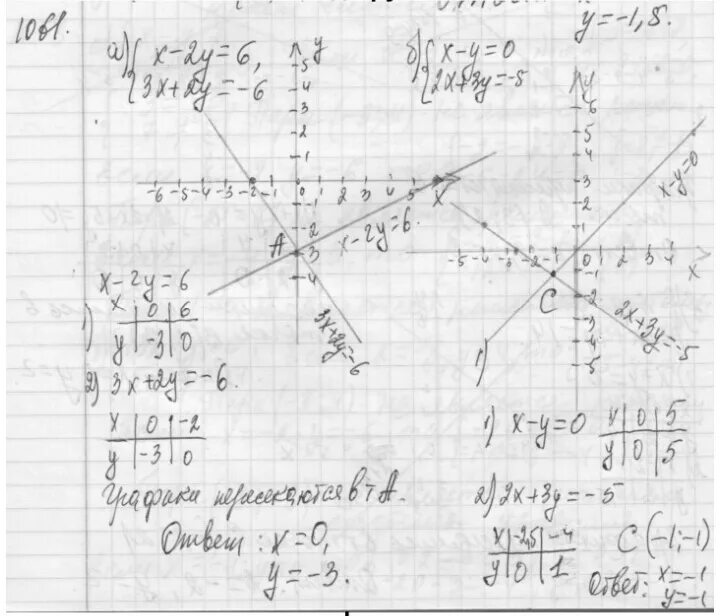 1061.
y=-1,8.
а) { x-2y=6,
3x+2y=-6
б) { x-y=0
2x+3y=-5
y
5
4
3
2
1
-6 -5 -4 -3 -2 -1 0 1 2 3 4 5 x
A
-2
-3
-4
x-2y=6.
3x+2y=-6
y
6
5
4
3
2
1
-5 -4 -3 -2 -1 0 1 2 3 4 x
-1
-2
-3
-4
-5
C
x-y=0
2x+3y=-5
1)
x-2y=6
1) x | 0 | 6
y | -3 | 0
2) 3x+2y=-6.
x | 0 | -2
y | -3 | 0
Графики пересекаются в т A.
Ответ: x=0,
y=-3.
1) x-y=0
x | 0 | 5
y | 0 | 5
2) 2x+3y=-5
x | -2,5 | -4
y | 0 | 1
C (-1;-1)
Ответ: x=-1
y=-1